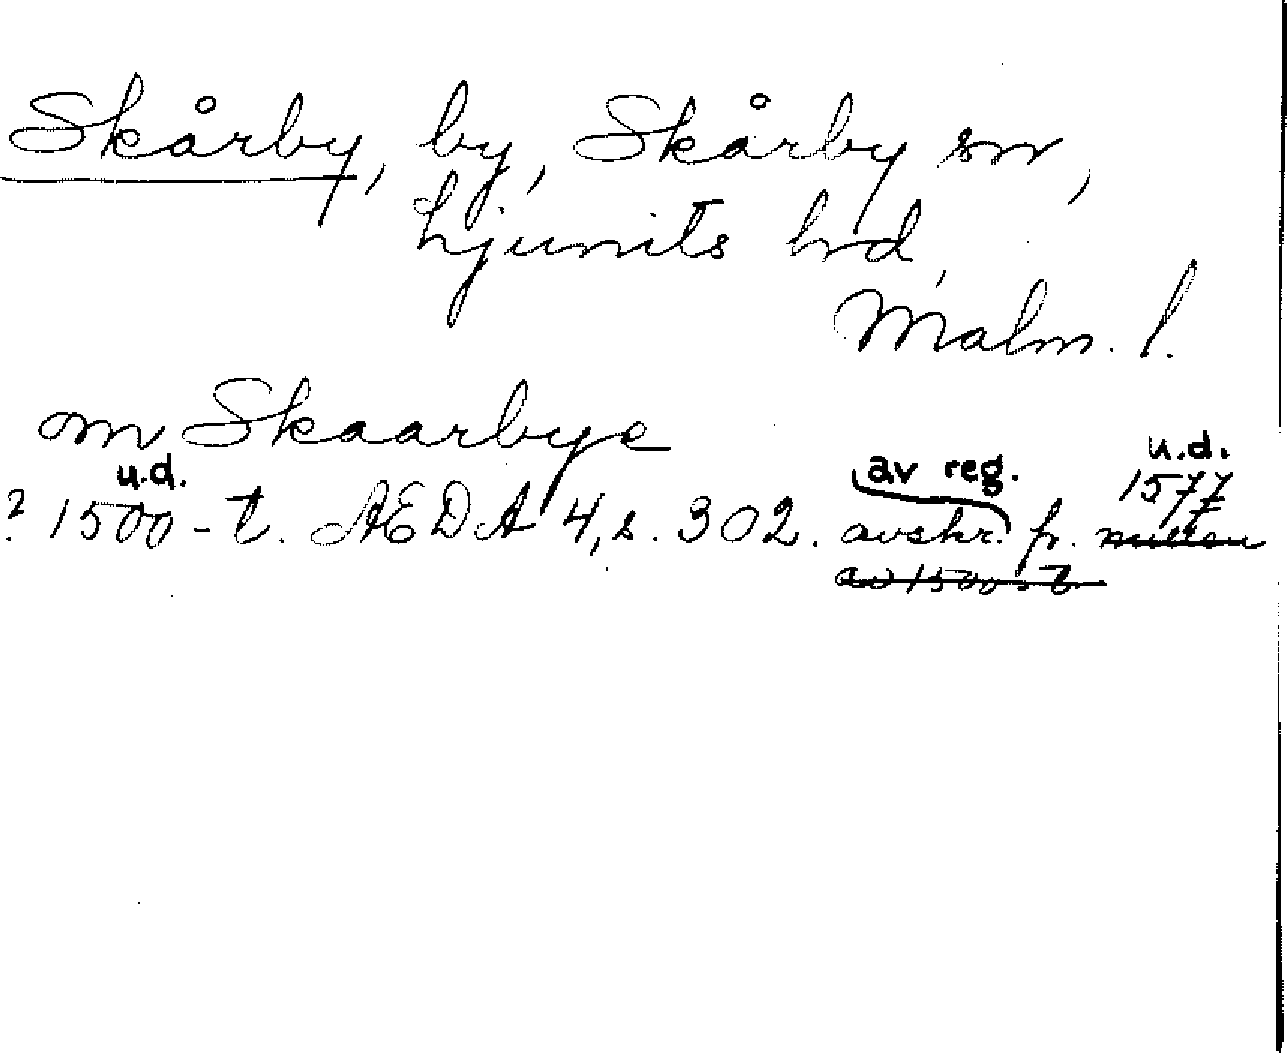 Skårby, by, Skårby sn,
Ljunits hd,
Malm. l.
m Skaarbye
u.d. av reg. u.d.
1577
? 1500-t. ÆDA 4, s. 302. avskr. fr.
av 1500-t.